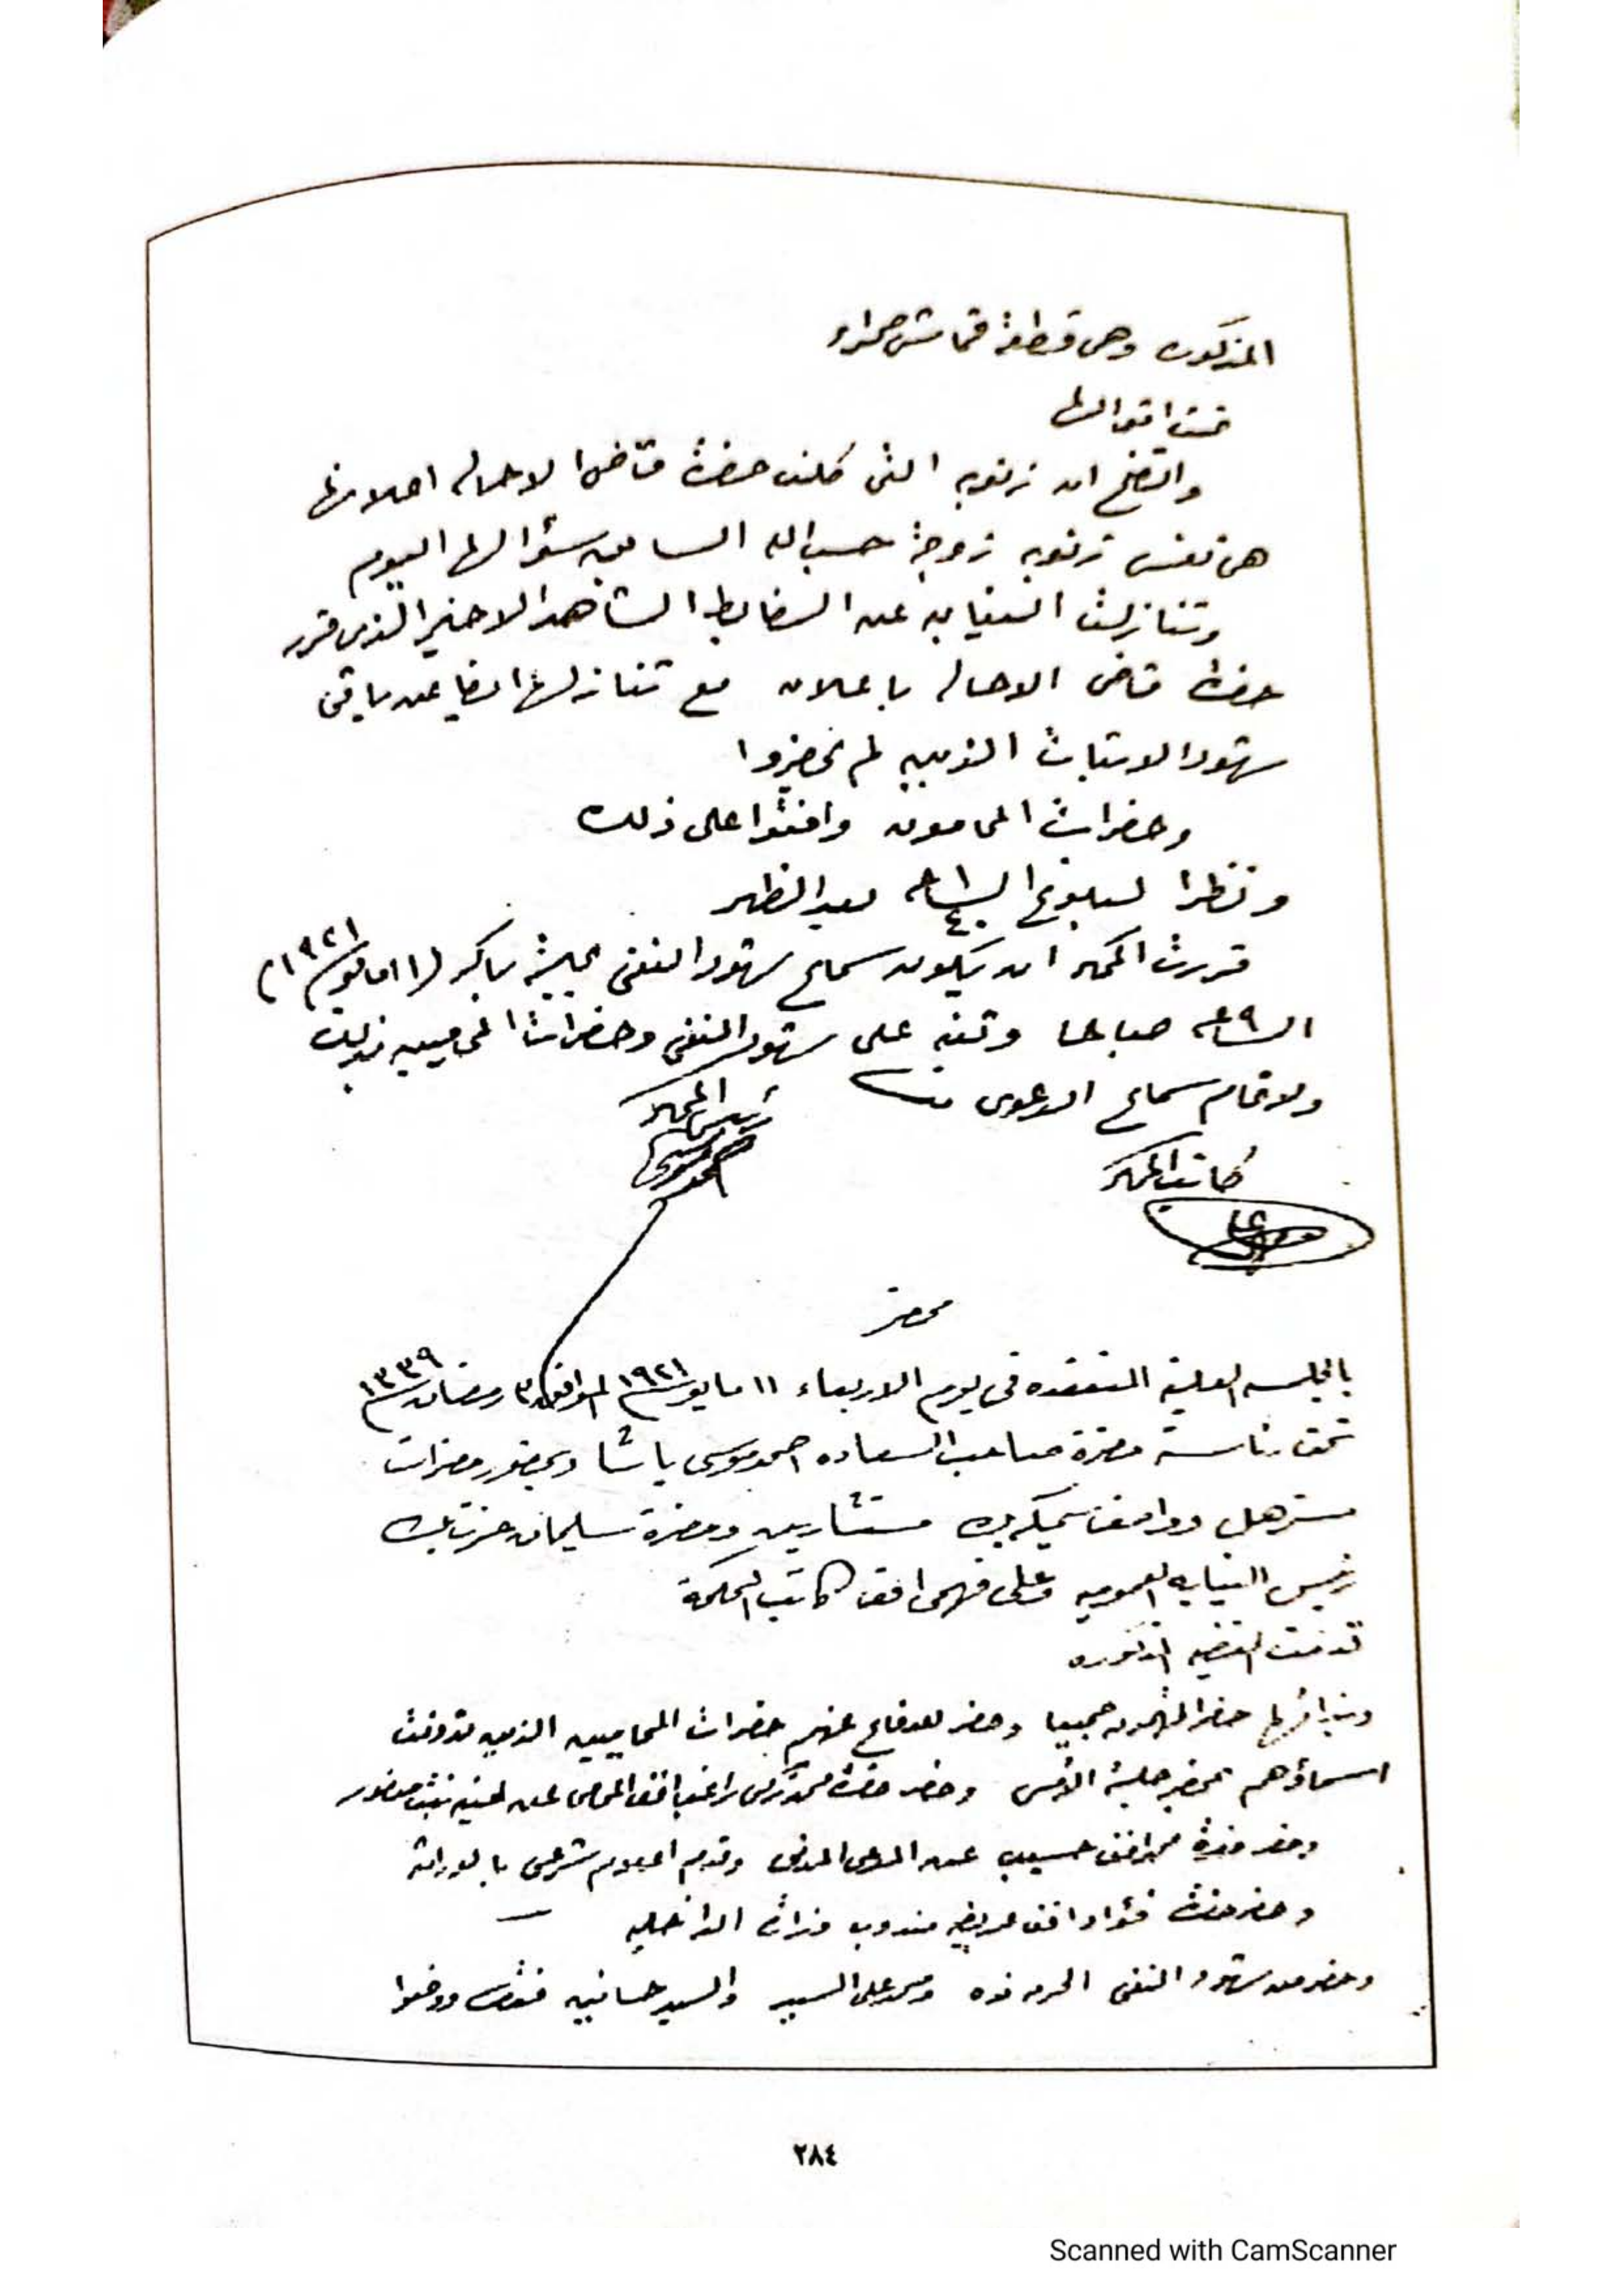 المذكوره وهى قطعة قماش حمراء
تمت اقوالها
واتضح ان زنوبه التى كلف حضرة قاضى الاحاله اعلانها
هى نفس زنوبه زوجة حسب الله السابق سؤالها اليوم
وتنازلت النيابه عن الضابط الشاهد الاخير الذى قرر
حضرة قاضى الاحاله باعلانه مع تنازلها ايضا عن باقى
شهود الاثبات الذين لم يحضروا
وحضرات المحامون وافقوا على ذلك
ونظرا لبلوغ الساعه بعد الظهر
قررت المحكمة ان يكون سماع شهود النفى بجلسة باكر (١١ مايو سنة ١٩٢١)
الساعه ٩ صباحا وتنبه على شهود النفى وحضرات المحاميين بذلك
ولاتمام سماع الدعوى
كاتب المحكمة رئيس المحكمة
محضر
بالجلسه العلنية المنعقده فى يوم الاربعاء ١١ مايو سنة ١٩٢١ الموافق ٣ رمضان سنة ١٣٣٩
تحت رئاسة حضرة صاحب السعاده احمد موسى باشا وبحضور حضرات
مستر هل وواصف سميكه بك مستشارين وحضرة سليمان عزت بك
رئيس النيابه العموميه وعلى فهمى افندى كاتب المحكمة
قدمت القضيه المذكوره
وبندائها حضر المتهمون جميعا وحضر للدفاع عنهم حضرات المحاميين الذين تدونت
اسماؤهم بمحضر جلسة الأمس وحضر حضرة محمد زكى راغب افندى المحامى عن امينه بنت منصور
وحضر حضرة محمد افندى حسيب عن المدعى المدنى وقدم اعلام شرعى بالوراثة
وحضر حضرة فؤاد افندى مندوب وزارة الداخليه
وحضر من شهود النفى الحرمه نوه ومحمد على السيد والسيد حسانين
٢٨٤
Scanned with CamScanner